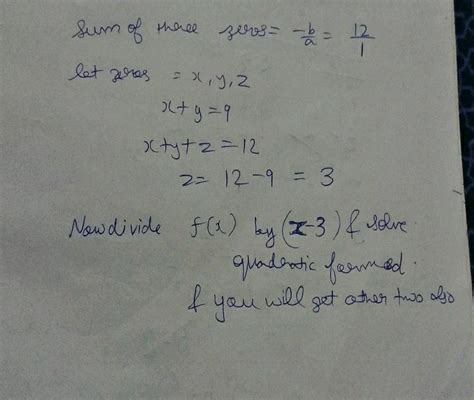 Sum of three zeros = -b/a = 12/1
let zeros = x, y, z
x+y=9
x+y+z=12
z= 12-9 = 3
Now divide f(x) by (x-3) & solve
quadratic formed.
& you will get other two also